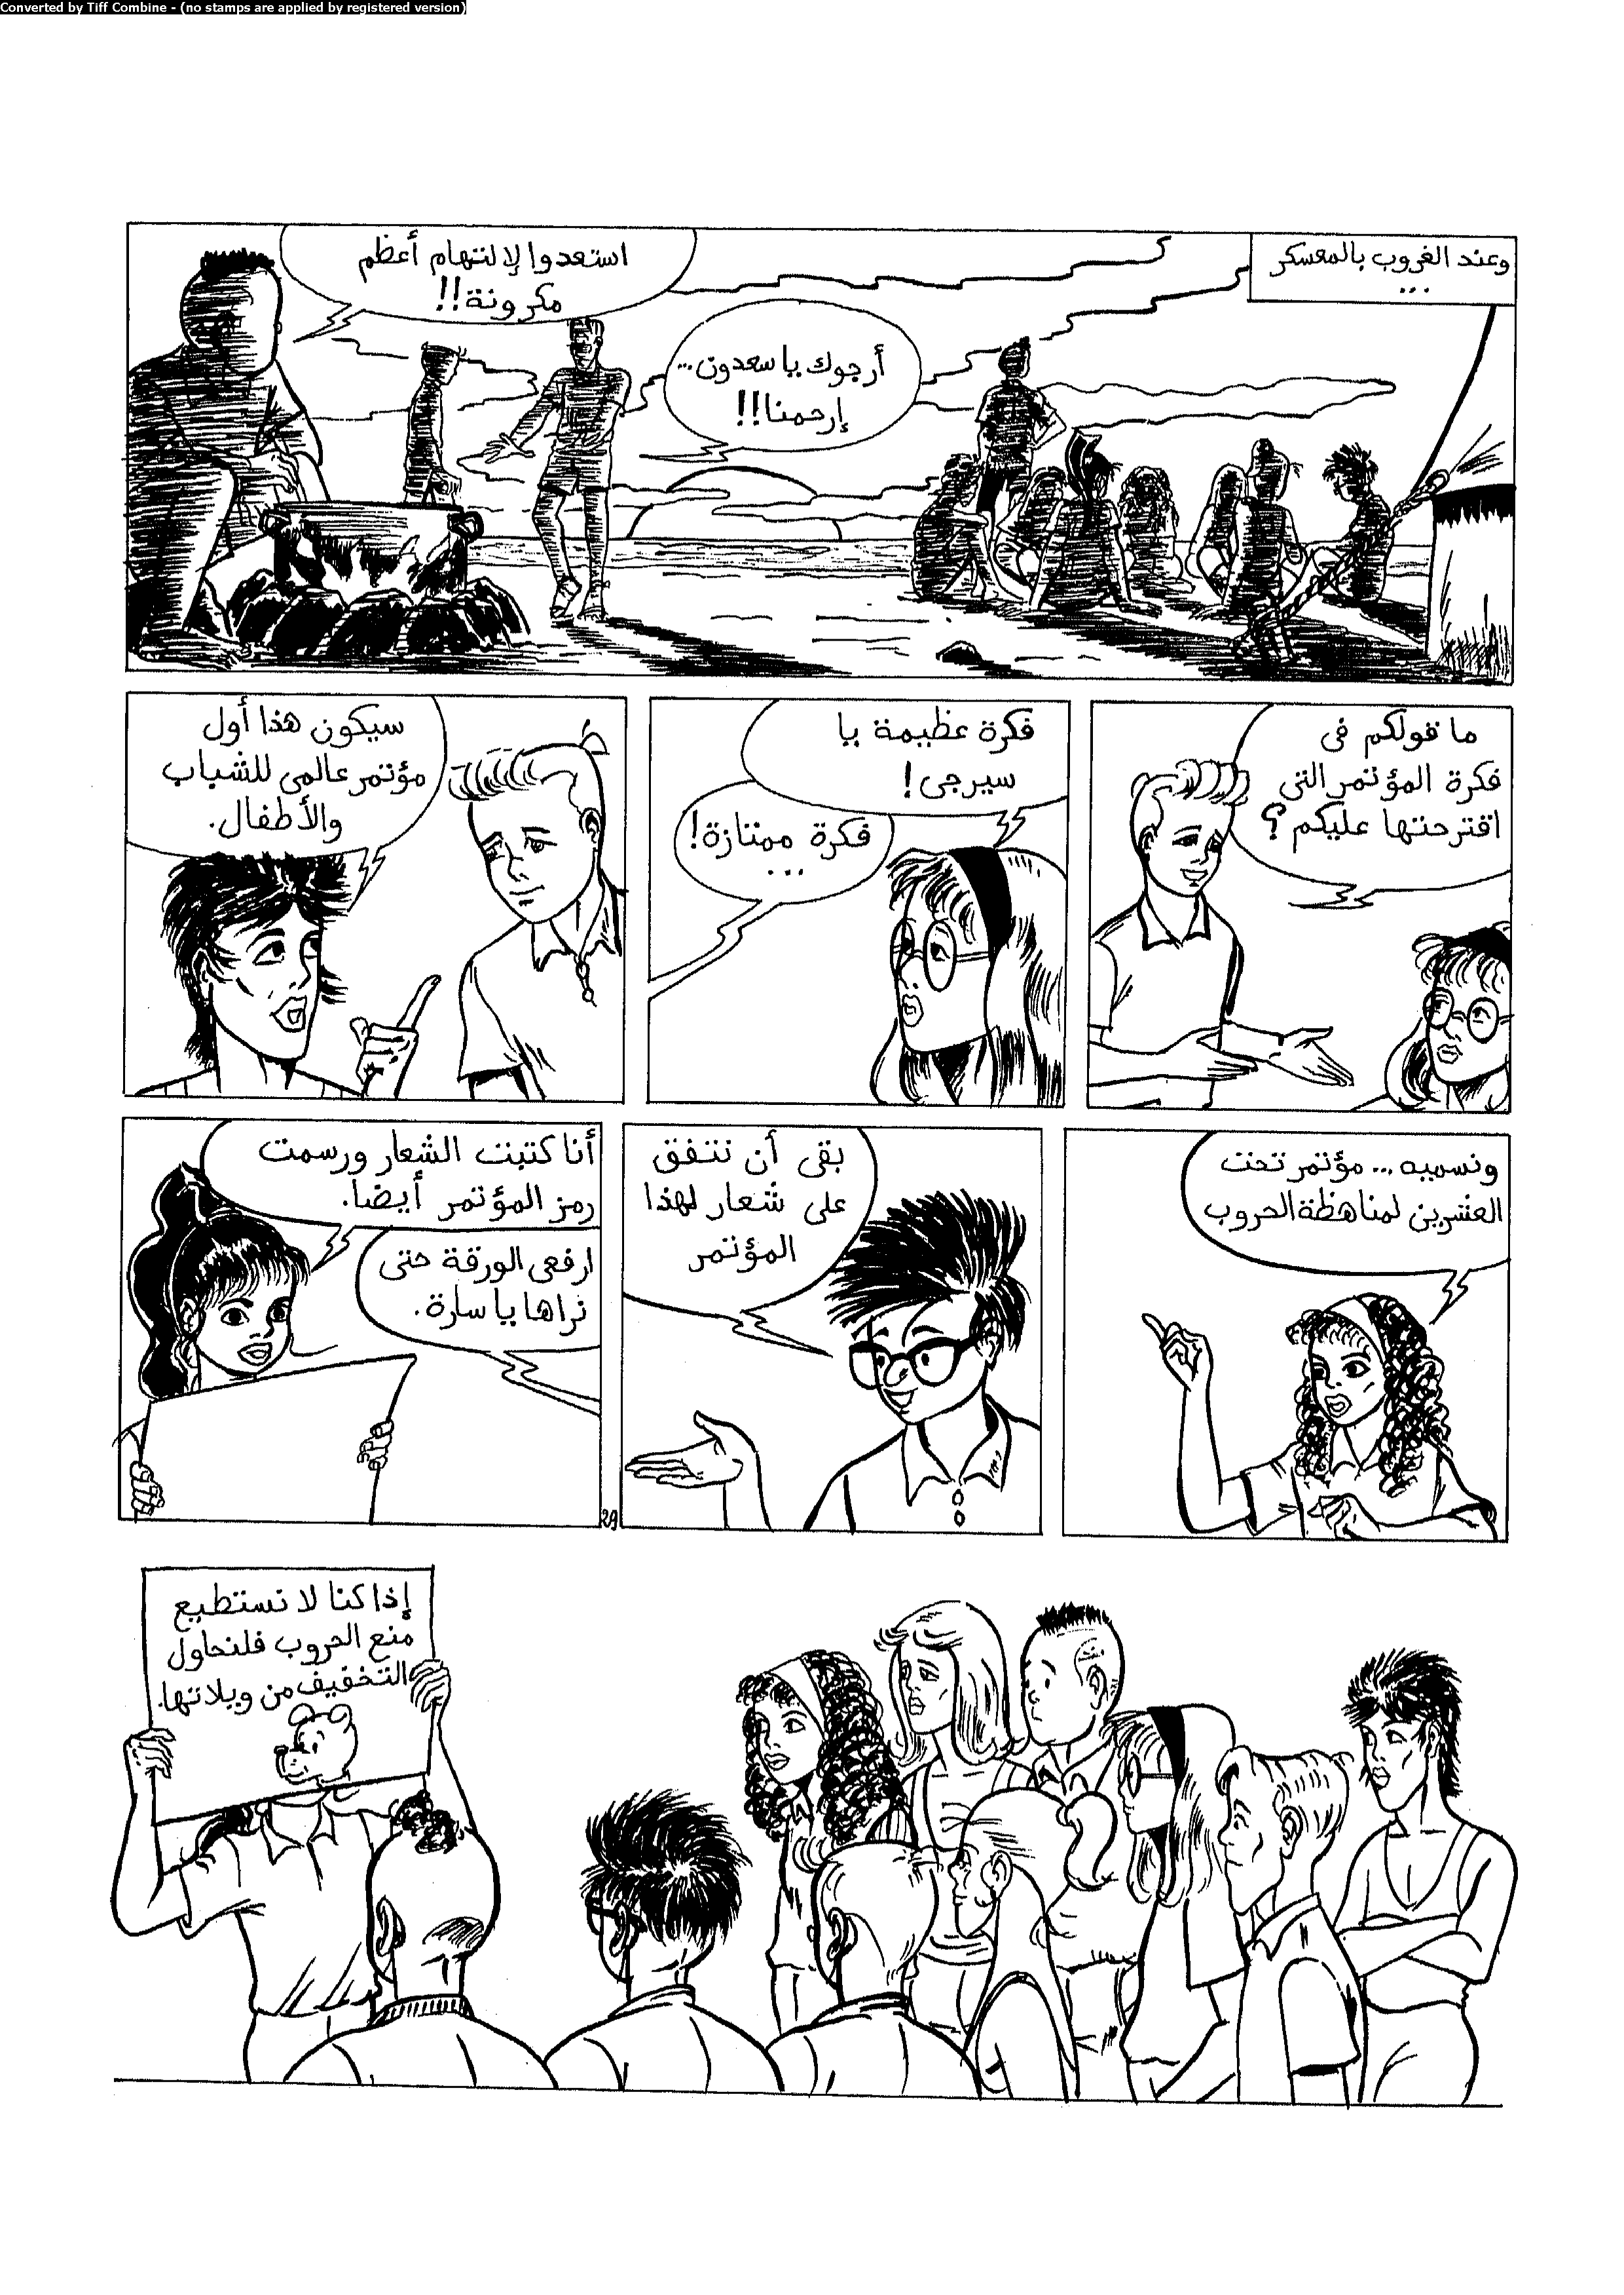 Converted by Tiff Combine - (no stamps are applied by registered version)
وعند الغروب بالمعسكر
...
استعدوا لإلتهام أعظم
مكرونة!!
أرجوك يا سعدون...
إرحمنا!!
ما قولكم فى
فكرة المؤتمر التى
اقترحتها عليكم؟
فكرة عظيمة يا
سيرجى!
فكرة ممتازة!
...
سيكون هذا أول
مؤتمر عالمى للشباب
والأطفال.
ونسميه... مؤتمر تحت
العشرين لمناهظة الحروب
بقى أن نتفق
على شعار لهذا
المؤتمر
أنا كتبت الشعار ورسمت
رمز المؤتمر أيضا.
ارفعى الورقة حتى
نراها يا سارة.
29
إذا كنا لا نستطيع
منع الحروب فلنحاول
التخفيف من ويلاتها.